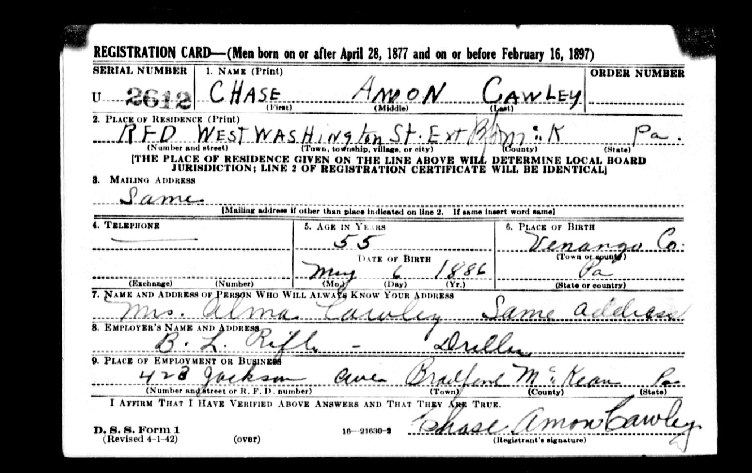 REGISTRATION CARD—(Men born on or after April 28, 1877 and on or before February 16, 1897)
SERIAL NUMBER 1. NAME (Print) ORDER NUMBER
U 2612 CHASE AMON CAWLEY
(First) (Middle) (Last)
2. PLACE OF RESIDENCE (Print)
RFD WEST WASHINGTON ST. EXT McK Pa.
(Number and street) (Town, township, village, or city) (County) (State)
[THE PLACE OF RESIDENCE GIVEN ON THE LINE ABOVE WILL DETERMINE LOCAL BOARD
JURISDICTION; LINE 2 OF REGISTRATION CERTIFICATE WILL BE IDENTICAL]
3. MAILING ADDRESS
Same
[Mailing address if other than place indicated on line 2. If same insert word same]
4. TELEPHONE 5. AGE IN YEARS 6. PLACE OF BIRTH
55 Venango Co.
DATE OF BIRTH (Town or county)
May 6 1886 Pa
(Exchange) (Number) (Mo.) (Day) (Yr.) (State or country)
7. NAME AND ADDRESS OF PERSON WHO WILL ALWAYS KNOW YOUR ADDRESS
Mrs. Alma Cawley Same address
8. EMPLOYER'S NAME AND ADDRESS
B. L. - Driller
9. PLACE OF EMPLOYMENT OR BUSINESS
423 Jackson ave Bradford McKean Pa
(Number and street or R. F. D. number) (Town) (County) (State)
I AFFIRM THAT I HAVE VERIFIED ABOVE ANSWERS AND THAT THEY ARE TRUE.
D. S. S. Form 1
(Revised 4-1-42) (over) 16—21630-2 Chase Amon Cawley
(Registrant's signature)